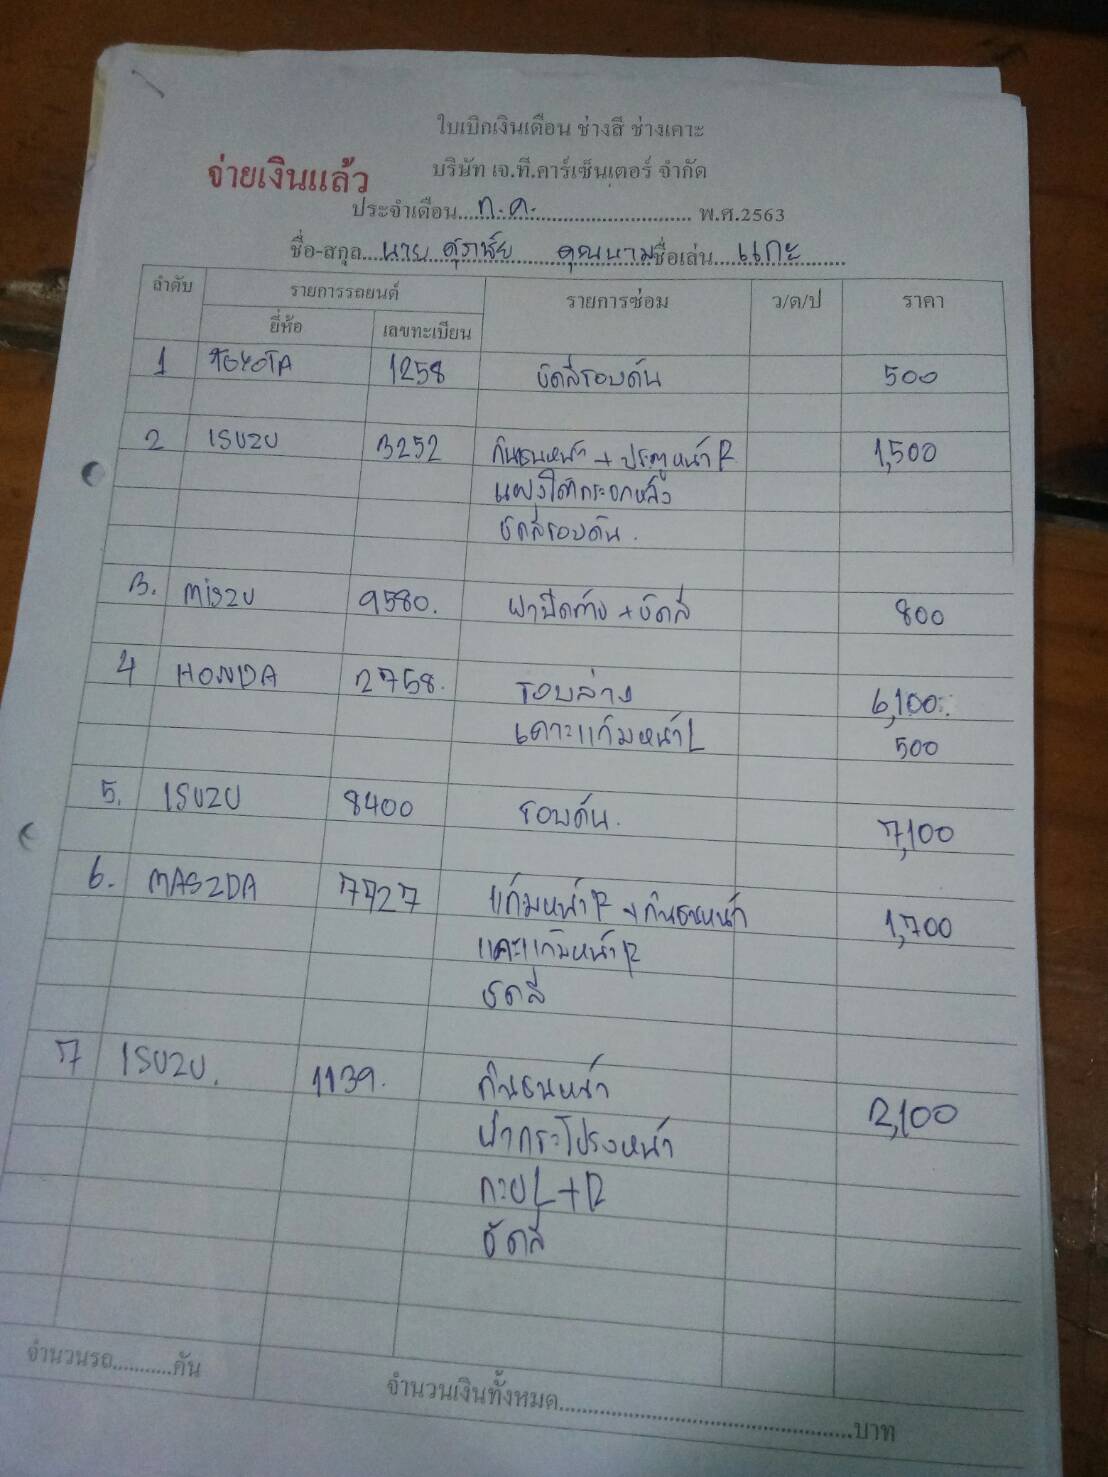 ใบเบิกเงินเดือน ช่างสี ช่างเคาะ
จ่ายเงินแล้ว บริษัท เจ.ที.คาร์เซ็นเตอร์ จำกัด
ประจำเดือน ก.ค. พ.ศ.2563
ชื่อ-สกุล นาย ชื่อเล่น แกะ
ลำดับ รายการรถยนต์ รายการซ่อม ว/ด/ป ราคา
ยี่ห้อ เลขทะเบียน
1 TOYOTA 1258 ขัดสีรอบคัน 500
2 ISUZU 3252 กันชนหน้า + ประตูหน้า R 1,500
แผงใต้กระจกหลัง
ขัดสีรอบคัน.
3. MISZU 9580. ฝาปิดถัง + ขัดสี 800
4 HONDA 2758. รอบล่าง 6,100
เคาะแก้มหน้า L 500
5. ISUZU 8400 รอบคัน. 7,100
6. MASZDA 7727 แก้มหน้า R + กันชนหน้า 1,700
แคะแก้มหน้า R
ขัดสี
7 ISUZU. 1139. กันชนหน้า 2,100
ฝากระโปรงหน้า
L+R
ขัดสี
จำนวนรถ...........คัน จำนวนเงินทั้งหมด..................................................บาท